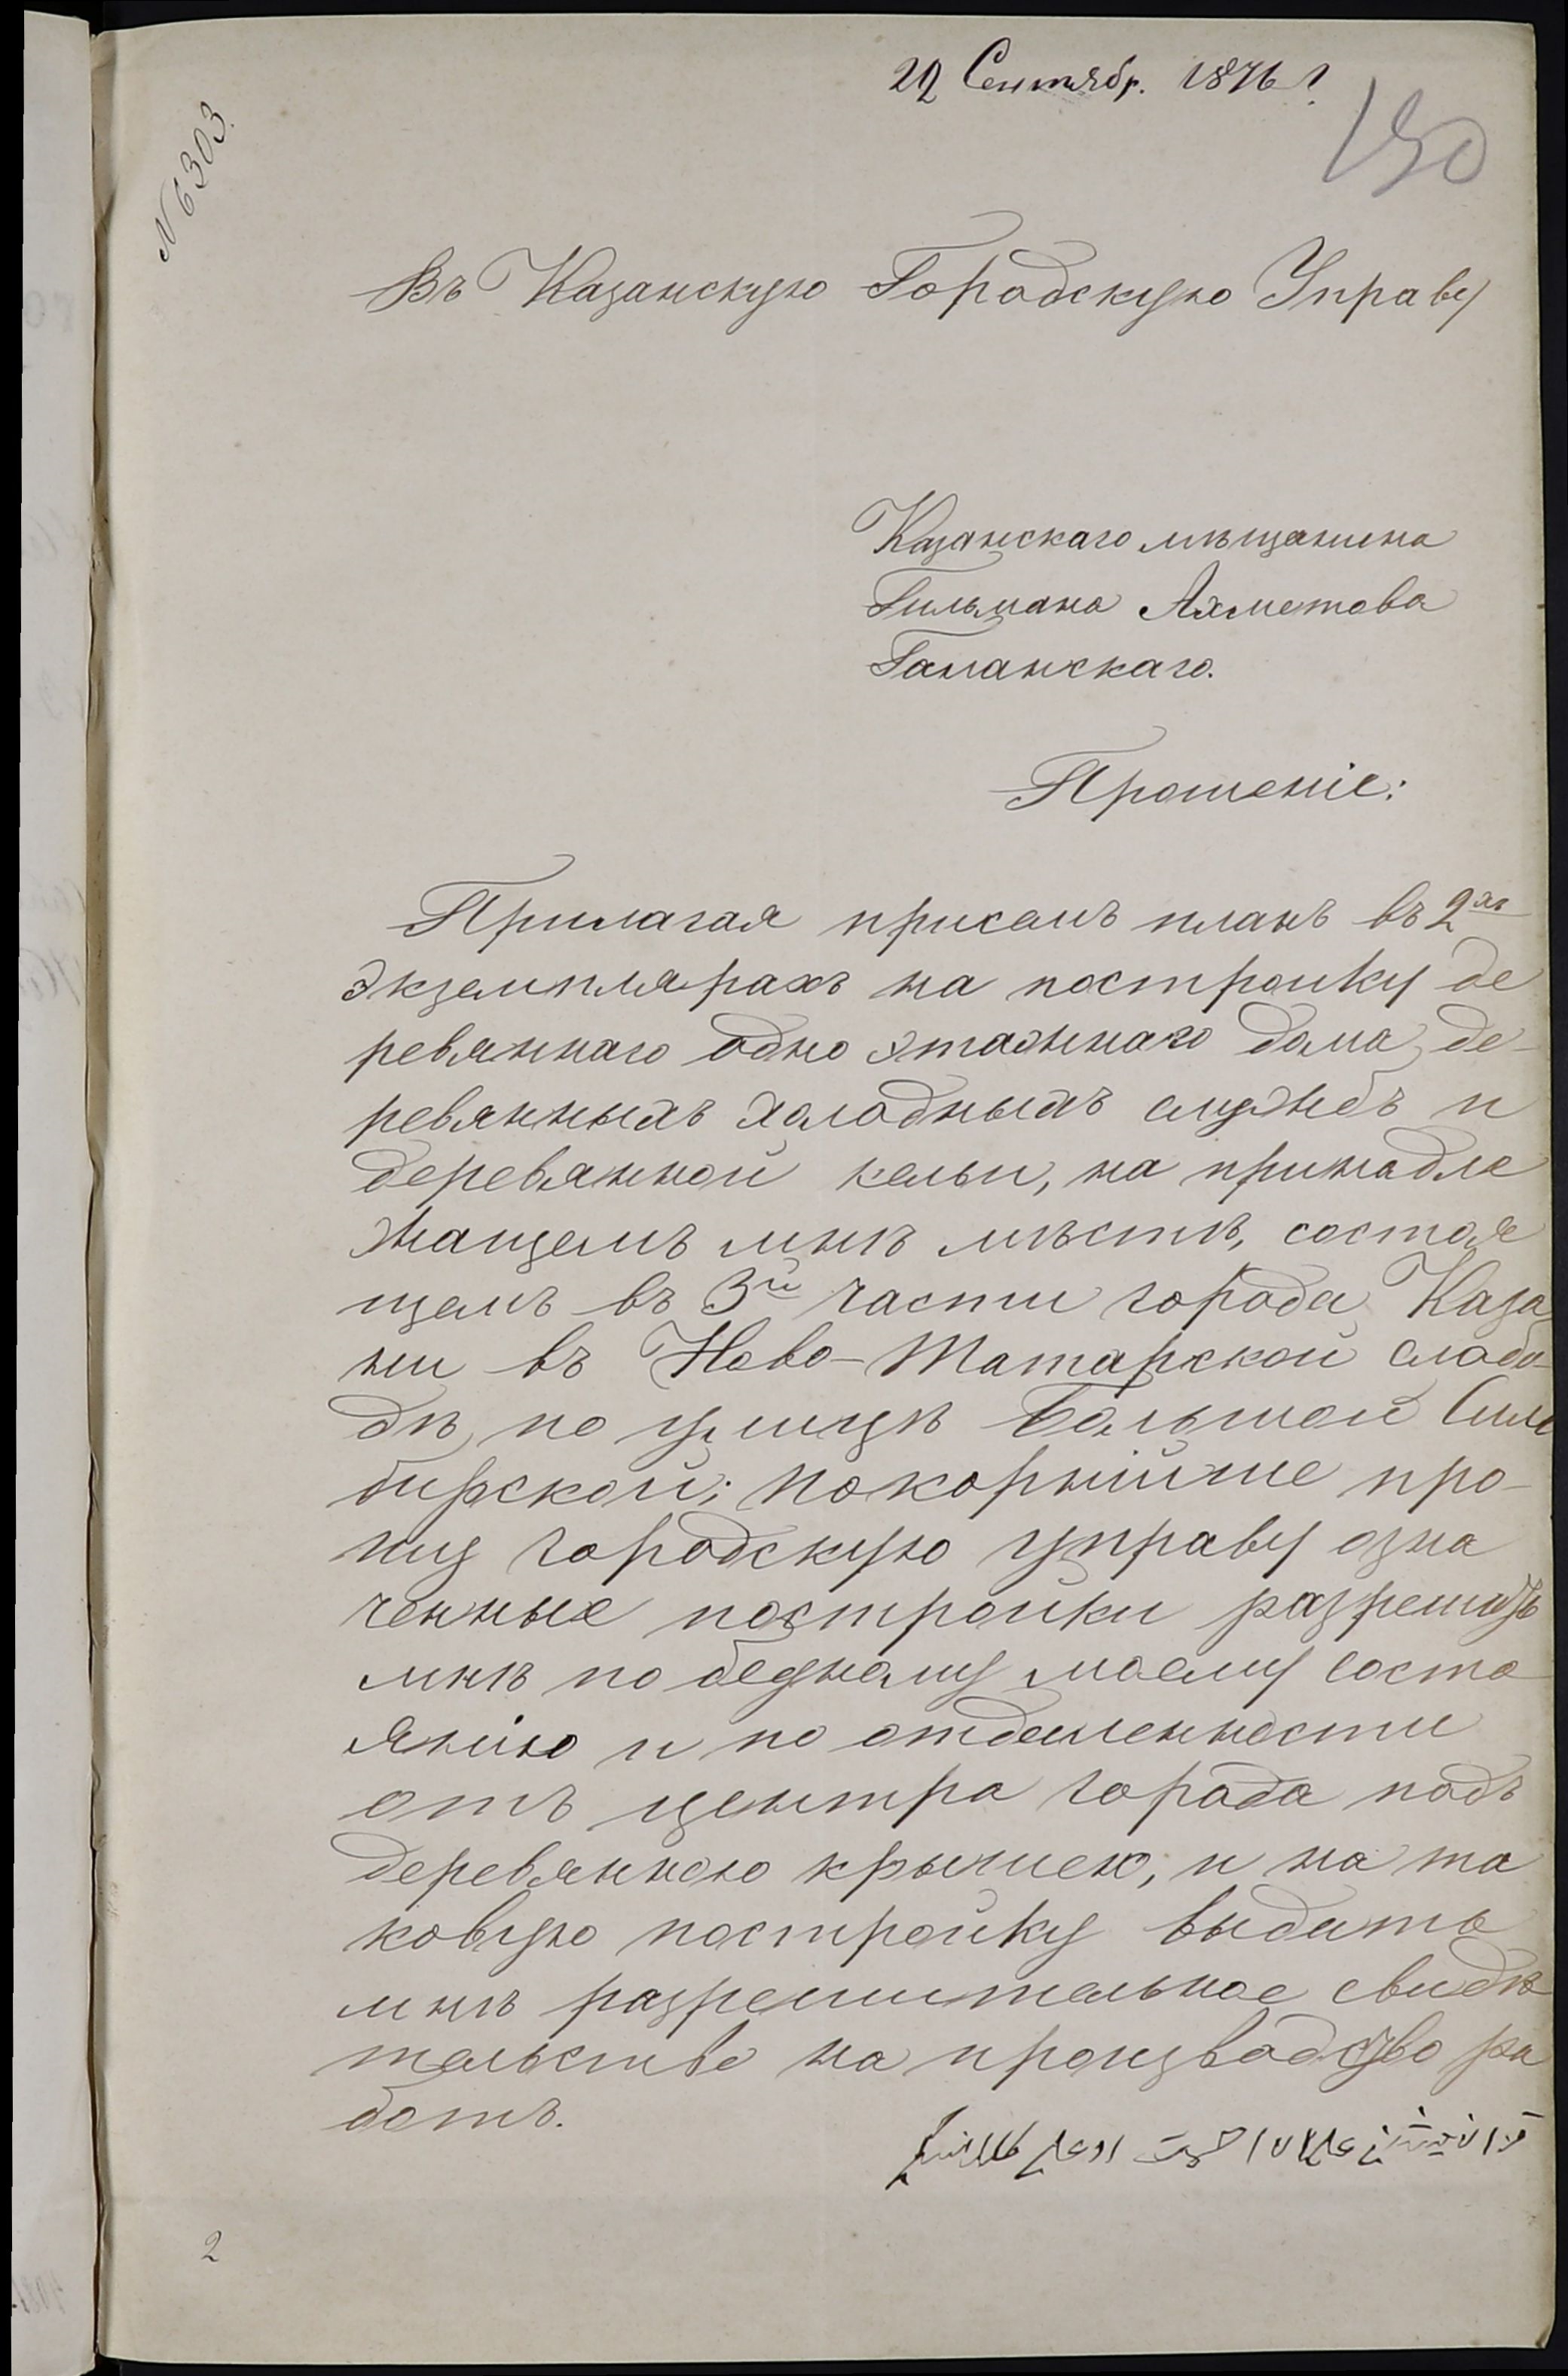 22 Сентябр. 1876 г.
150
N 6303.
Въ Казанскую Городскую Управу
Казанскаго мѣщанина
Гильмана Ахметова
Галанскаго.
Прошеніе:
Прилагая присемъ планъ въ 2хъ
экземплярахъ на постройку де
ревяннаго одно этажнаго дома, де-
ревянныхъ холодныхъ службъ и
деревянной кельи, на принадле
жащемъ мнѣ мѣстѣ, состоя
щемъ въ 3й части города Каза
ни въ Ново-Татарской слобо-
дѣ, по улицѣ Большой Сим
бирской; покорнѣйше про-
шу городскую управу озна
ченные постройки разрешить
мнѣ по бедному моему состо
янію и по отдаленности
отъ центра города подъ
деревянною крышею, и на та
ковую постройку выдать
мнѣ разрешительное свидѣ
тельство на производство ра
ботъ.
2